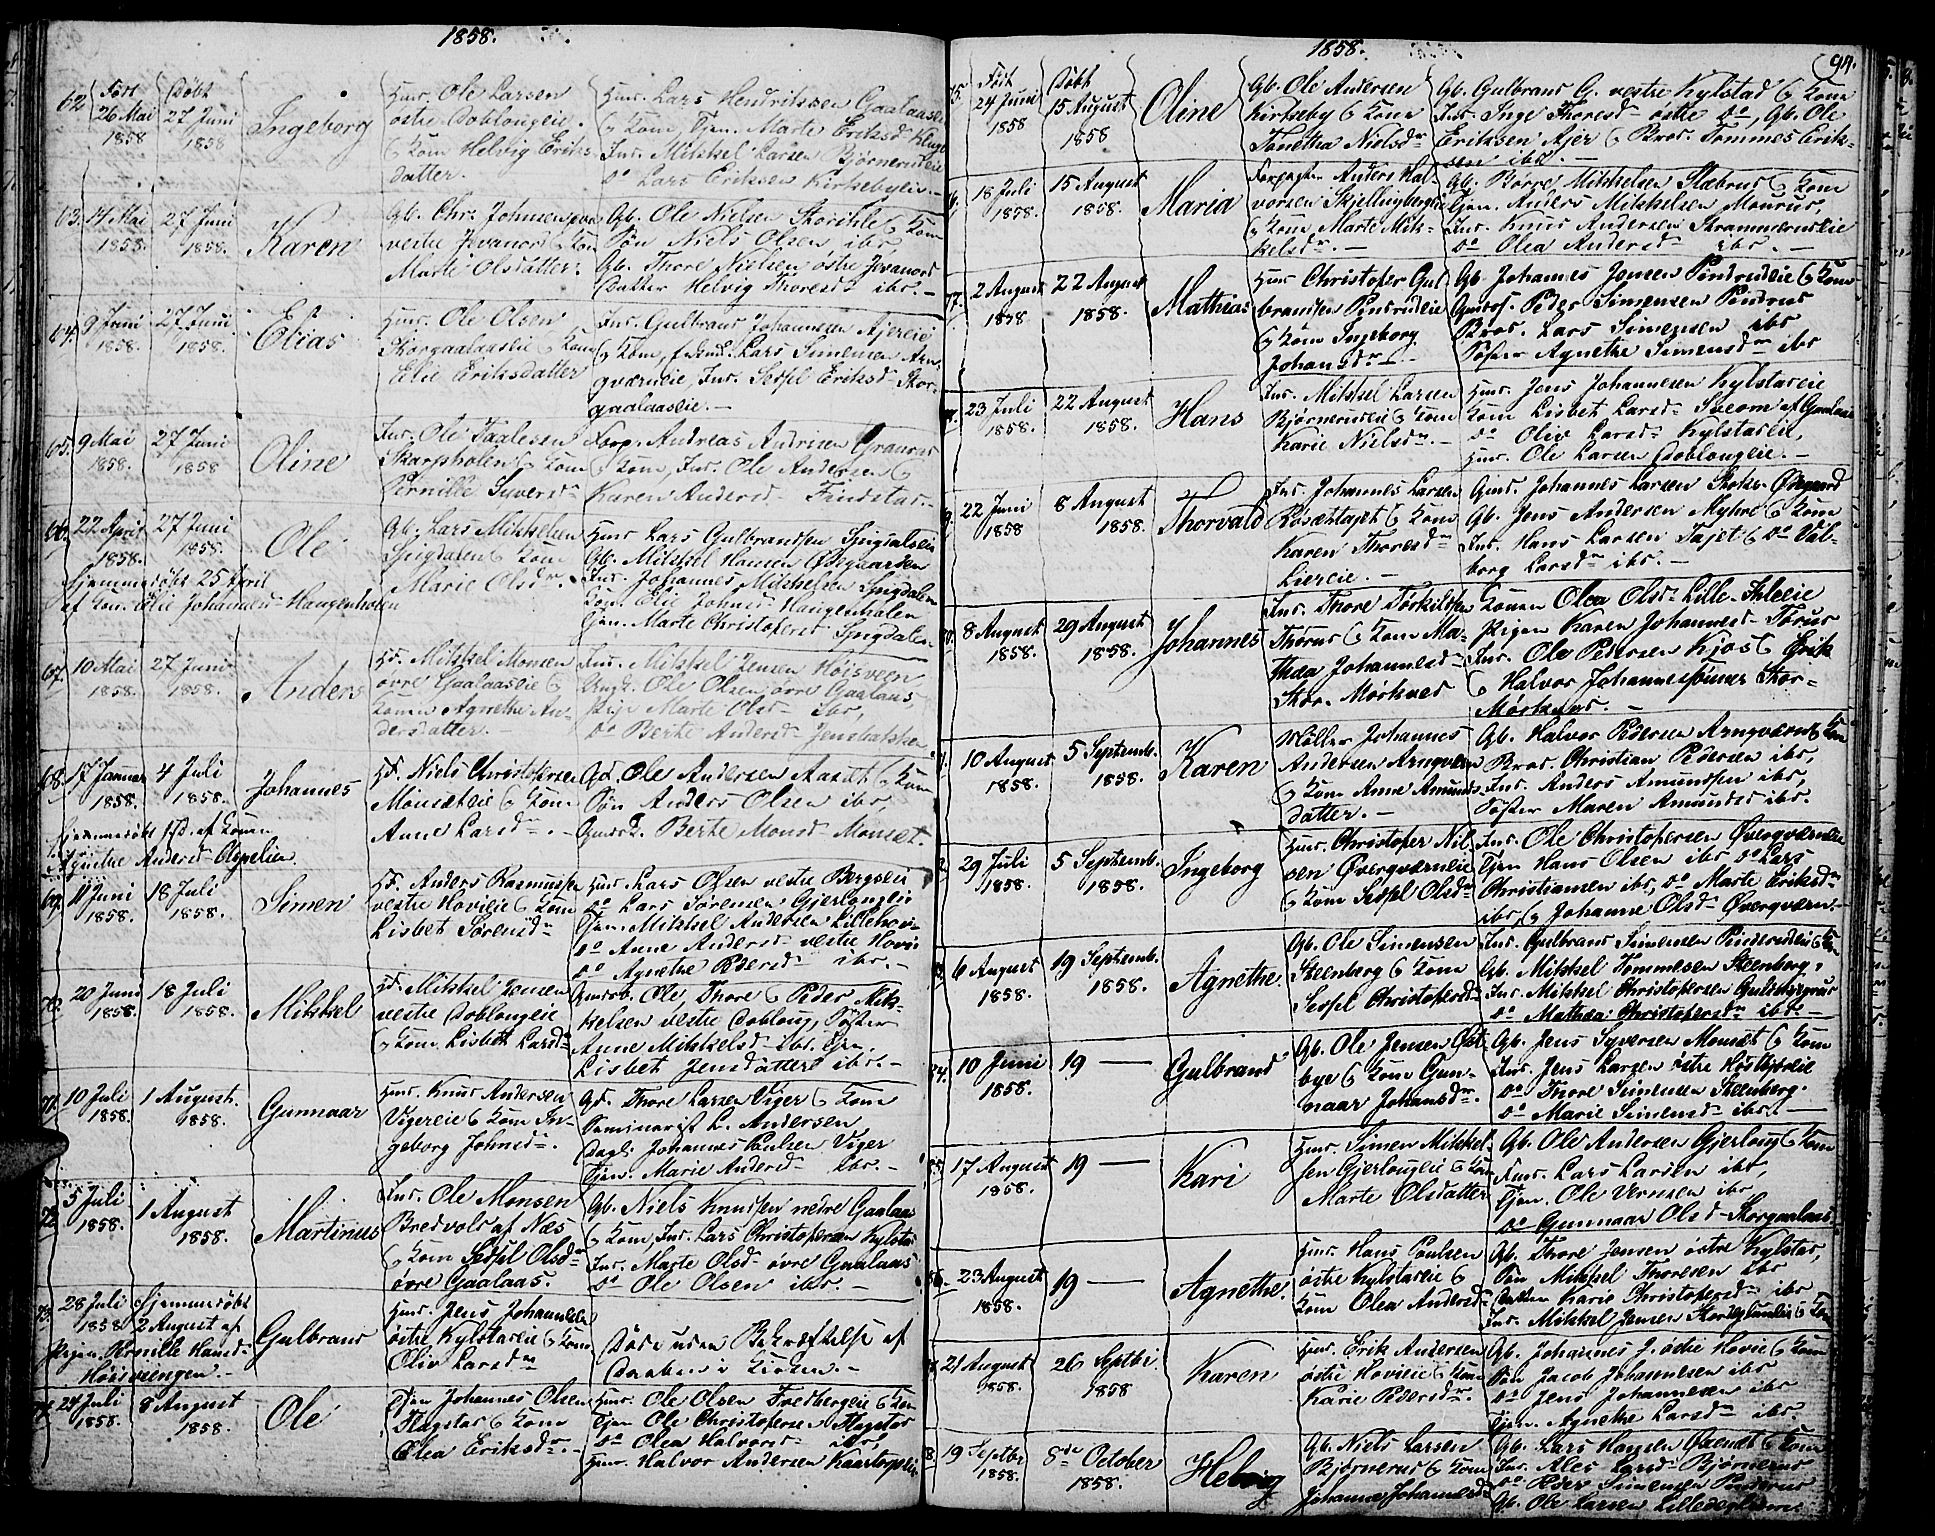 1858.
62 Født 26 Mai 1858
Døbt 27 Juni 1858
Ingeborg
Huus. Ole Larsen
østre Doblougeie.
og Kone Helvig Eriks-
datter.
Huus. Lars Hendriksen Gaalaaseie
og Kone, Tjen. Marte Eriksd.
Ins. Mikkel Larsen Bjørnerudeie
Do Lars Eriksen Kirkebyeie.
63. 14 Mai 1858.
27 Juni 1858.
Karen
Gb. Chr. Johnsen
vestre Jevanord og Kone
Marte Olsdatter.
Gb. Ole Nielsen Storihle og Kone
Søn Niels Olsen ibr.
Gb. Thore Nielsen østre Jevanord
Datter Helvig Thoresd. ibr.
64. 9 Juni 1858.
27 Juni 1858.
Elias
Huus. Ole Olsen
Storgaalaaseie og Kone
Elie Eriksdatter
Ins. Gulbrand Johannesen Ajereie
og Kone, Lars Simensen Arn-
gværneie, Ins. Sedsel Eriksd. Stor-
gaalaaseie.
65. 9 Mai 1858.
27 Juni 1858
Oline
Ins. Ole Taalesen
Skarpholen og Kone
Pernille Syversdr.
Forp. Andreas Andersen Granrud
og Kone, Ins. Ole Andersen og
Karen Andersd. Findstad.
66. 22 April 1858.
27 Juni 1858.
Ole
Hjemmedøbt 25 April
af Kone Elie Johannesd. Haugenholen
Gb. Lars Mikkelsen
Sjugdalen og Kone
Marie Olsdr.
Huus Lars Gulbrandsen Sjugdalseie
Gb. Mikkel Hansen Østgaarden
Ins. Johannes Mikkelsen Sjugdalen
Kone Elie Johnsd. Haugenholen
Tjen. Marte Christophersd. Sjugdalen.
67. 10 Mai 1858.
27 Juni 1858.
Anders
Hd. Mikkel Monsen
øvre Gaalaaseie og
Konen Agnethe An-
dersdatter.
Ins. Mikkel Jensen Høisveen
Ungk. Ole Olsen øvre Gaalaas,
Pige Marte Olsd. ibr,
Do Berte Andersd. Jensbakken
68. 17 Januar 1858.
4 Juli 1858.
Johannes
Hjemmedøbt af Konen
Agnethe Andersd. Ospelien.
Hd. Niels Christophersen
Monsæteie og Kone
Anne Larsdr.
Gd. Ole Andersen Aasæt og Kone
Søn Anders Olsen ibr,
Gaardsd. Berte Monsd. Monsæt.
69. 11 Juni 1858.
18 Juli 1858.
Simen
Hd. Anders Rasmussen
vestre Hovieie og Kone
Lisbet Sørensdr.
Huus. Lars Olsen vestre Bergseie
Do Lars Sørensen Gjerlougeie
Tjen. Mikkel Andersen Lillehov.
Do Anne Andersd. vestre Hovie
Do Agnethe Pedersd. ibr.
70. 20 Juni 1858.
18 Juli 1858.
Mikkel
Hd. Mikkel Jensen
vestre Dobloug eie
og Kone Lisbet Larsdr.
Gaardb. Ole, Thore og Peder Mik-
kelsen vestre Dobloug, Søster
Anne Mikkelsd. ibr. Tjen.
Lisbet Jensdatter ibr.
71. 10 Juli 1858.
1 August. 1858.
Gunnaar
Huus. Knud Andersen
Vigereie og Kone In-
geborg Johnsdr.
Gd. Thore Larsen Viger og Kone
Seminarist L. Andersen,
Dagl. Johannes Paulsen Viger
Tjen. Marie Andersd. ibr.
72. 5 Juli 1858.
1 August 1858.
Martinus
Ins. Ole Monsen
Bredvold af Næs
og Kone Sedsel Olsdr.
øvre Gaalaas.
Gb. Niels Knudsen nedre Gaalaas
og Kone, Ins. Lars Christophersen Kylstad
Ins. Marte Olsd. øvre Gaalaas
Do Ole Olsen ibr.
73. 28 Juli 1858
Hjemmedøbt
2 August af
Pigen Pernille Hansd.
Høisveengen.
Gulbrand
Huus. Jens Johannesen
østre Kylstadeie og Kone
Olive Larsdr.
Døde uden Bekræftelse af
Daaben i Kirken.
74. 24 Juli 1858.
8 August 1858.
Ole
Tjen Johannes Olsen
Flagstad og Kone
Olea Eriksdr.
Huus. Ole Olsen Fredbergeie og Kone
Tjen Ole Christophersen Flagstad
Do Olea Halvorsd. ibr,
Huus. Halvor Andersen Kaarstopseie
1858.
94.
75. Født 24 Juni 1858
Døbt 15 August 1858
Oline
Gb. Ole Andersen
Kirkeby og Kone
Tonetha Nielsdr.
Gb. Gulbrand G. vestre Kylstad og Kone
Ins. Inge Thoresd. østre Do, Gb. Ole
Eriksen Ajer og Brod. Tommes Erik-
sen ibr.
18 Juli 1858.
15 August 1858.
Maria
Forpagter Anders Hal-
vorsen Skjellingbergeie
og Kone Marte Mik-
kelsdr.
Gb. Børre Mikkelsen Stæbrud og Kone
Tjen. Anders Mikkelsen Monrud,
Ins. Knud Andersen Strammerudeie
Do Olea Andersd. ibr.
77. 2 August 1858
22 August 1858.
Mathias
Huus Christopher Gul-
brandsen Pindrudeie
og Kone Ingeborg
Johansdr.
Gb. Johannes Jensen Pindrudeie og Kone
Gaardss. Peder Simensen Pindrud
Brod. Lars Simensen ibr
Søster Agnethe Simensdr. ibr
23 Juli 1858.
22 August 1858.
Hans
Ins. Mikkel Larsen
Bjørnerudeie og Kone
Karie Nielsdr.
Huus. Jens Johannesen Kylstadeie
Kone Lisbet Larsd. Sveom af Gaalaas
Do Olive Larsd. Kylstadeie,
Huus. Ole Larsen Dobloug eie.
22 Juni 1858
8 August 1858.
Thorvald
Ins. Johannes Larsen
Røsættajet og Kone
Karen Thoresdr.
Liereie.
Gaard. Johannes Larsen Østgaard
Gb. Jens Andersen Myhre og Kone
Ins. Hans Larsen Tajet og Do Val-
borg Larsdr. ibr.
80. 8 August 1858.
29 August 1858.
Johannes
Ins. Thore Torkilsen
Thorud og Kone Ma-
thea Johannesd.
Stor-Mørkved
Konen Olea Olsd. Lille-Ihleeie
Pigen Karen Johannesd. Torud
Ins. Ole Pedersen Kjos og Erik
og Halvor Johannessønner Stor-
Mørkved.
10 August 1858.
5 Septemb. 1858.
Karen
Møller Johannes
Andersen Arnqværn
og Kone Anne Amunds-
datter.
Gb. Halvor Pedersen Arnqværn og Kone
Brod. Christian Pedersen ibr,
Ins. Anders Amundsen ibr,
Søster Maren Amundsd. ibr.
29 Juli 1858.
5 Septemb. 1858.
Ingeborg
Huus. Christopher Nil-
sen Øvergværneie
og Kone Sedsel Olsdr.
Ins. Ole Christophersen Øvergværneie
Tjen Hans Olsen ibr Do Lars
Christiansen ibr, Do Marte Eriksdr.
ibr, og Johanne Olsd. Øvergværn.
6 August 1858.
19 Septemb. 1858.
Agnethe.
Gb. Ole Simensen
Steenberg og Kone
Sedsel Christophersd.
Ins. Gulbrand Simensen Pinderudeie og Kone
Gb. Mikkel Tommesen Steenberg,
Ins. Mikkel Christophersen Gulliksgrud
Do Mathea Christophersdr. ibr.
84. 10 Juni 1858.
19 —
Gulbrand
Gb. Ole Jensen Øst-
bye og Kone Gun-
naar Johansdr.
Gb. Jens Syversen Monsæt og Kone
Ins. Jens Larsen østre
Do Thore Simensen Steenberg.
Do Marie Simensd. ibr.
17 August 1858.
19 —
Kari
Huus. Simen Mikkel-
sen Gjerlougeie og Kone
Marte Olsdatter
Gb. Ole Andersen Gjerloug og Kone
Ins. Lars Larsen ibr,
Tjen. Ole Vernsen ibr,
Do Gunnaar Olsd. Storgaalaas.
86. 23 August 1858.
19 —
Agnethe.
Huus. Hans Poulsen
østre Kylstadeie og
Kone Olea Andersd.
Gb. Thore Jensen østre Kylstad,
Søn Mikkel Thoresen ibr
Datter Karie Christophersd. ibr
Ins. Mikkel Jensen og Kone
21 August 1858.
26 Septbr 1858
Karen
Huus. Erik Andersen
østre Hovieie og Kone
Karie Pedersdr.
Gb. Johannes J. østre Hovie og Kone
Søn Jacob Johannesen ibr
Do Jens Johannesen ibr
Tjen. Agnethe Larsdr. ibr.
19 Septbr 1858.
8de October 1858.
Helvig
Gb. Niels Larsen
Bjørnerud og Kone
Johanne Johannesd.
Gb. Lars Hansen Øvensæt og Kone
Ins. Ales Larsd. Bjørnerud
Do Peder Simensen Pinderud
Gb. Ole Larsen